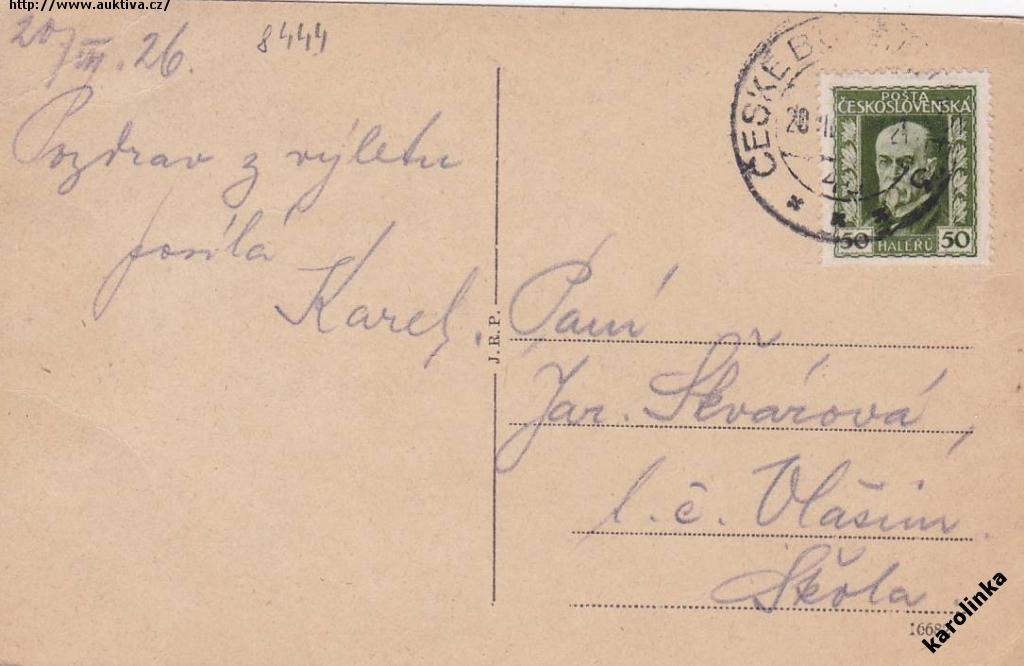 http://www.auktiva.cz/
20/III. 26.
8444
Pozdrav z výletu
posílá
Karel.
J. R. P.
ČESKÉ
20
POŠTA
ČESKOSLOVENSKA
50 HALÉŘŮ 50
Paní
Jar. Škvářová,
l. č. Vlašim
Škola
1668
karolinka